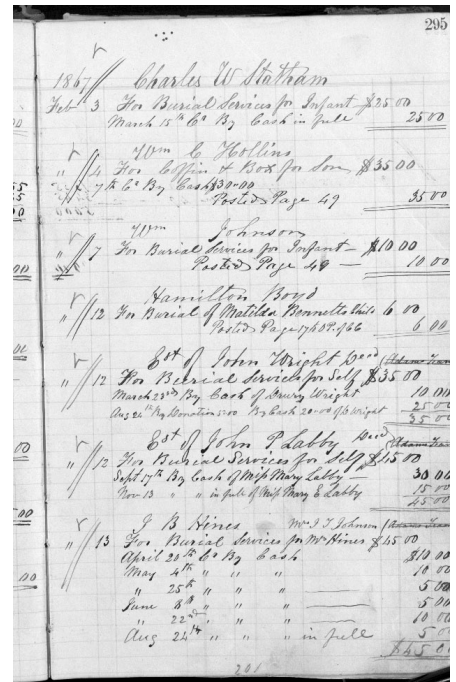 295
1867 Charles W Statham
Feb 3 For Burial Services for Infant $25 00
March 15th Cr By Cash in full 25 00
Wm C Hollins
" 4 For Coffin & Box for Son $35 00
7th Cr By Cash $30-00
Posted Page 49 35 00
Wm Johnson
" 7 For Burial Services for Infant — $10 00
Posted Page 49 — 10 00
Hamilton Boyd
" 12 For Burial of Matilda Bennetts Child 6 00
Posted Page 6 00
Est of John Wright Decd
" 12 For Burial Services for Self $35 00
March 23rd By Cash of Drury Wright 10 00
Aug 24th By Donation 5=00 By Cash 20-00 of Wright 25 00
35 00
Est of John P Labby Decd
" 12 For Burial Services for Self $45 00
Sept 17th By Cash of Miss Mary Labby — 30 00
Nov 13 " " in full of Miss Mary E Labby 15 00
45 00
J B Hines Mr J T Johnson
" 13 For Burial Services for Mr Hines $45 00
April 20th Cr By Cash $10 00
May 4th " " " 10 00
" 25th " " " 5 00
June 8th " " " 5 00
" 22nd " " " 10 00
Aug 24th " " " in full 5 00
$45 00